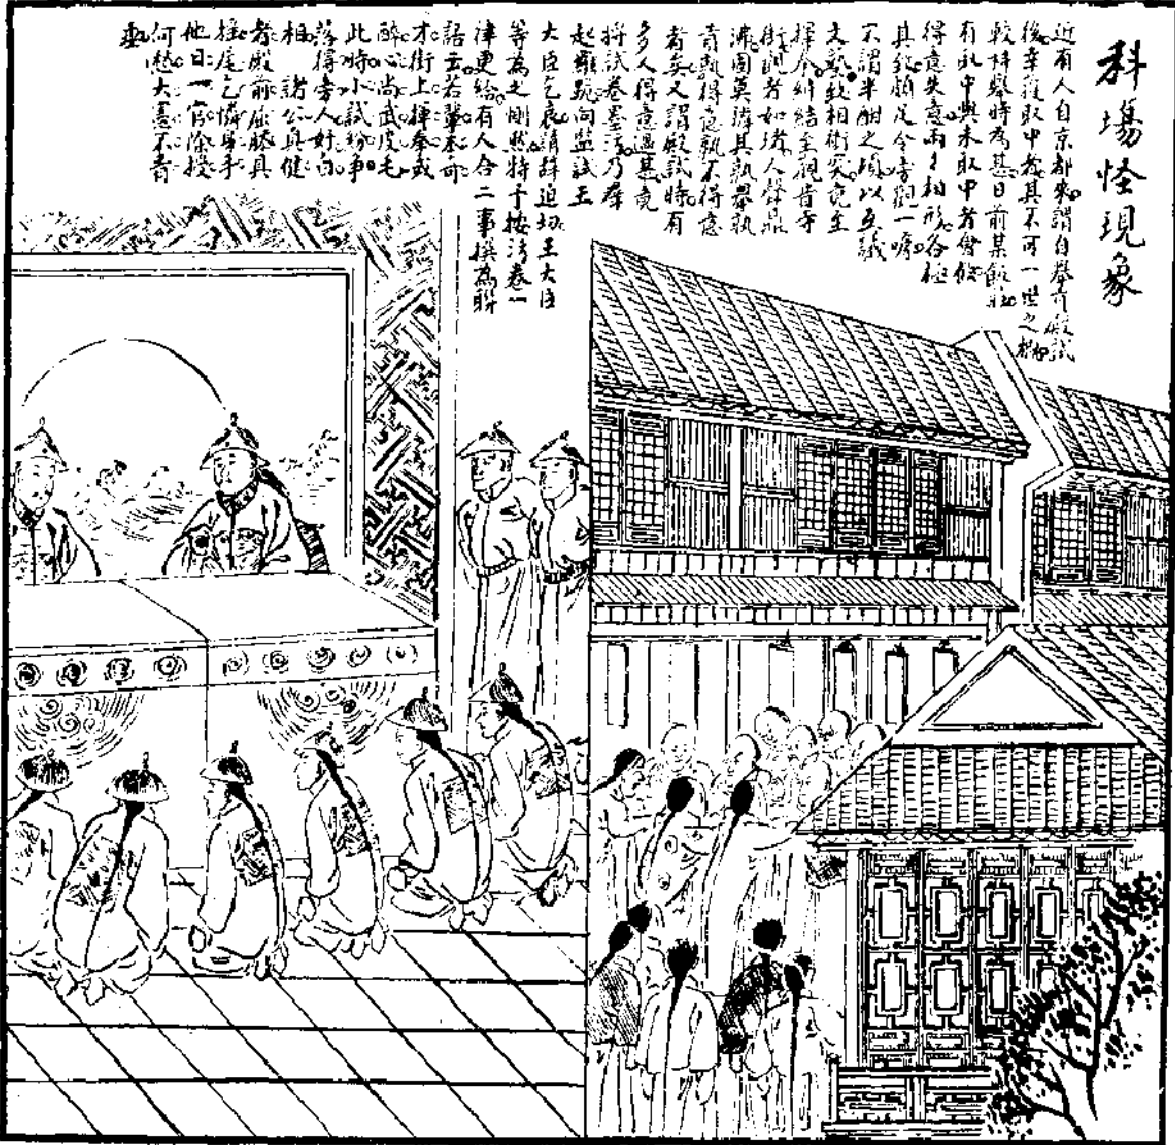 科場怪現象
近有人自京都來謂自舉行殿試
後幸獲取中者其不可一世之概
較科舉時為甚日前某飯莊
有取中與未取中者會飲
得意失意兩兩相形各極
其致頗足令旁觀一噱
不謂半酣之頃以互議
文藝致相衝突竟至
揮拳糾結至觀音寺
街觀者如堵人聲鼎
沸固莫辨其孰舉孰
貢孰得意孰不得意
者矣又謂殿試時有
多人得意過甚竟
將試卷墨污乃羣
起羅跪向監試王
大臣乞哀請辭迫切王大臣
等為之惻然特予按污卷一
律更給有人合二事撰為聯
語云若輩本奇
才街上揮拳或
醉心尚武皮毛
此時小試紛爭
落得旁人好白
相 諸公真健
者殿前屈膝具
搖尾乞憐身手
他日一官除授
何愁大憲不青
垂